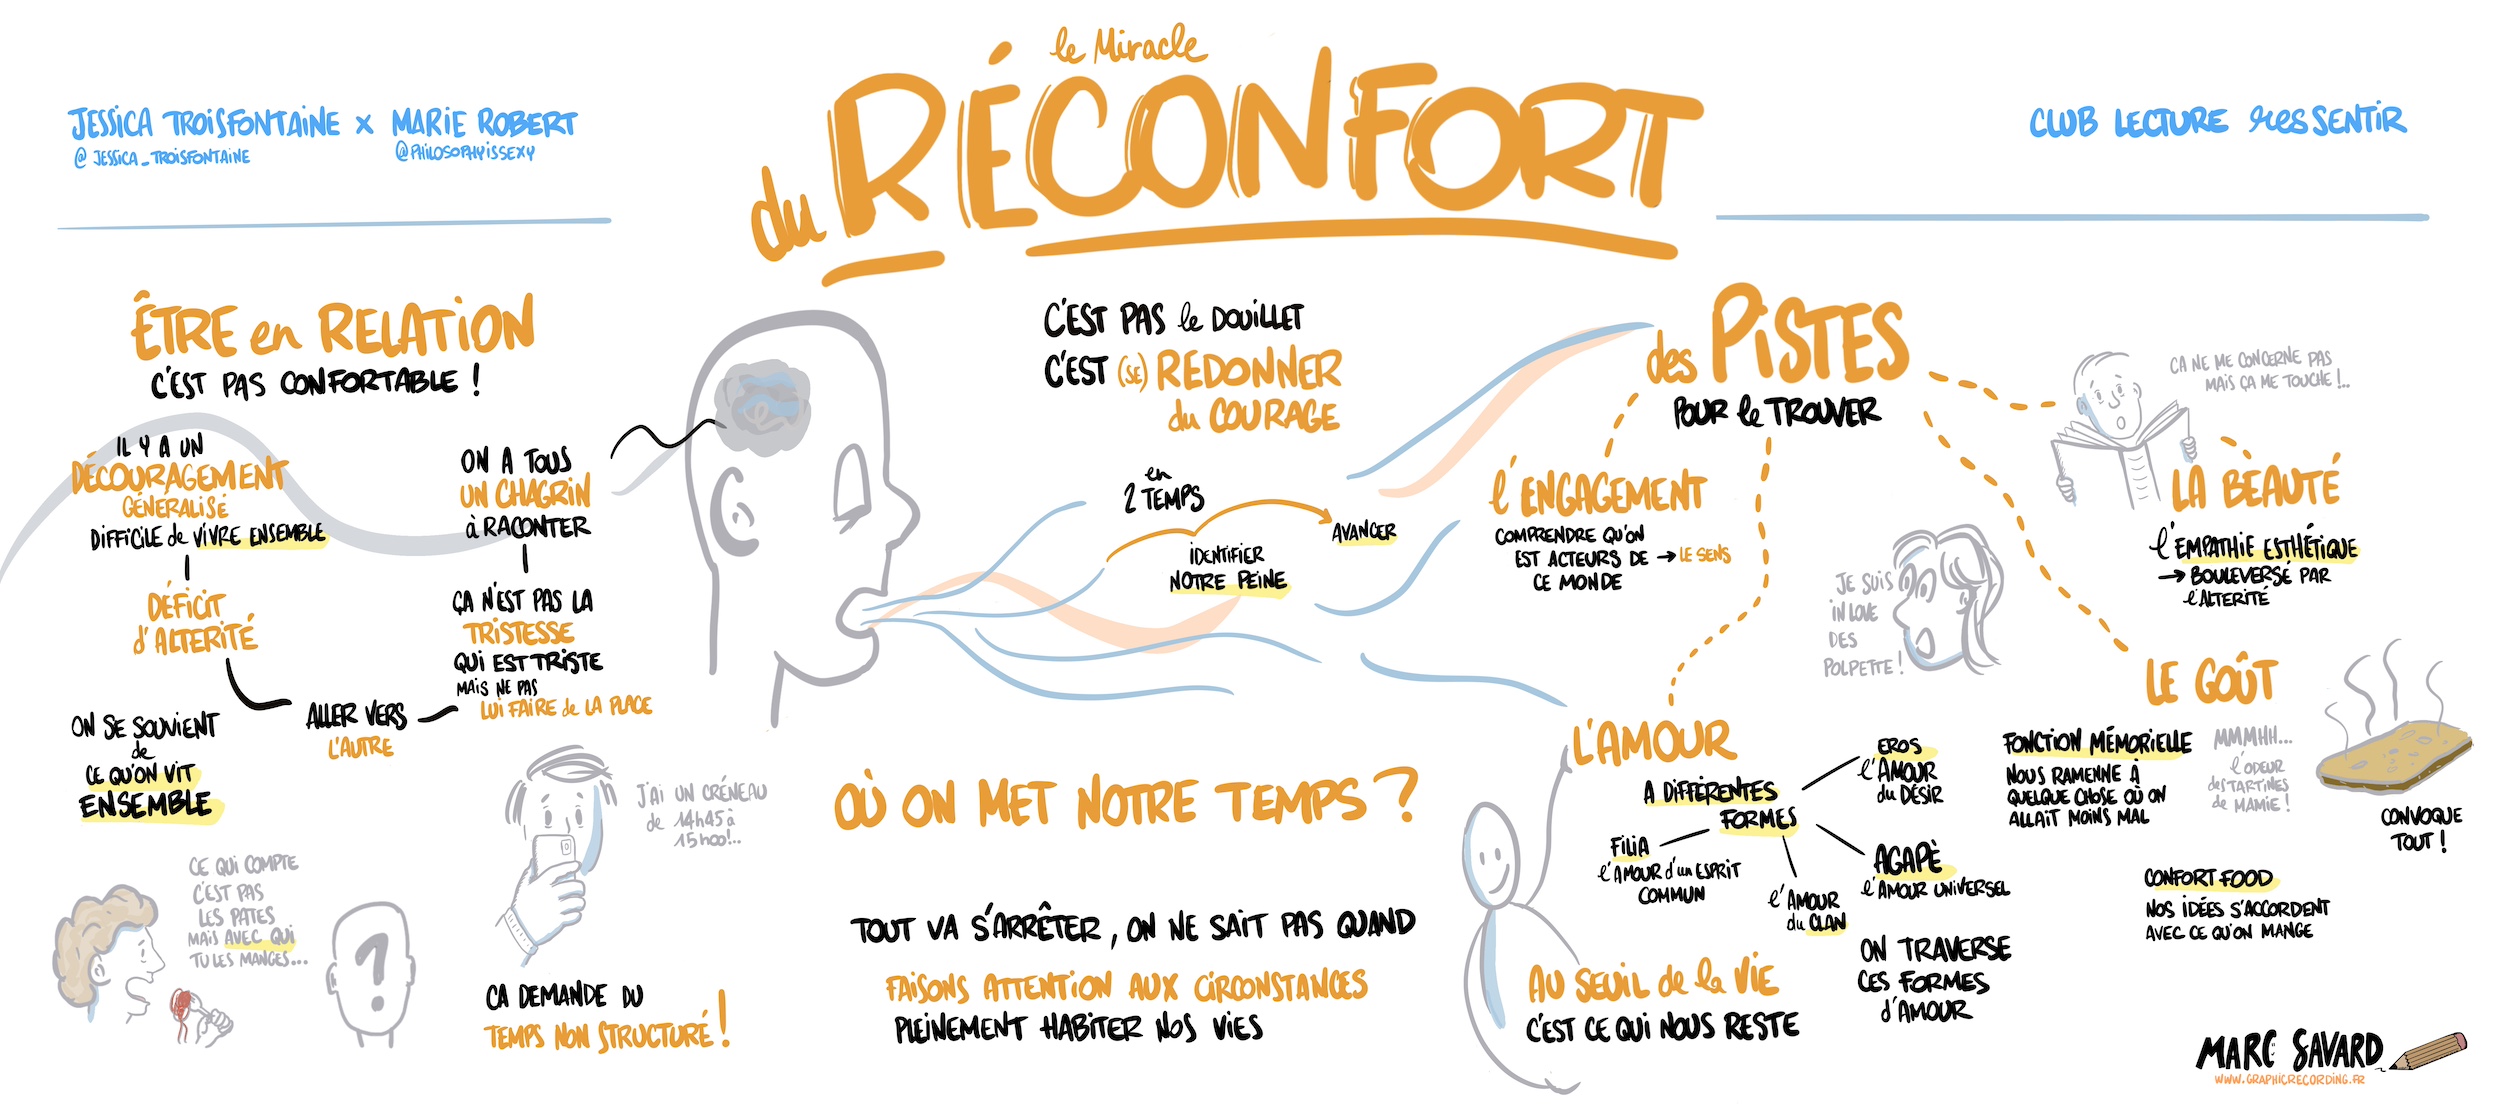 le Miracle
du RÉCONFORT
JESSICA TROISFONTAINE x MARIE ROBERT
@JESSICA_TROISFONTAINE
@PHILOSOPHYISSEXY
CLUB LECTURE resSENTIR
ÊTRE en RELATION
C'EST PAS CONFORTABLE !
IL Y A UN
DÉCOURAGEMENT
GÉNÉRALISÉ
DIFFICILE de VIVRE ENSEMBLE
DÉFICIT
d'ALTERITÉ
ALLER VERS
L'AUTRE
ON A TOUS
UN CHAGRIN
à RACONTER
ÇA N'EST PAS LA
TRISTESSE
QUI EST TRISTE
MAIS NE PAS
LUI FAIRE de LA PLACE
ON SE SOUVIENT
de
CE QU'ON VIT
ENSEMBLE
CE QUI COMPTE
C'EST PAS
LES PATES
MAIS AVEC QUI
TU LES MANGES...
?
J'AI UN CRÉNEAU
de 14h45 à
15h00!..
CA DEMANDE DU
TEMPS NON STRUCTURÉ !
C'EST PAS le DOUILLET
C'EST (SE) REDONNER
du COURAGE
en
2 TEMPS
IDENTIFIER
NOTRE PEINE
AVANCER
OÙ ON MET NOTRE TEMPS ?
TOUT VA S'ARRÊTER, ON NE SAIT PAS QUAND
FAISONS ATTENTION AUX CIRCONSTANCES
PLEINEMENT HABITER NOS VIES
des PISTES
POUR le TROUVER
l'ENGAGEMENT
COMPRENDRE QU'ON
EST ACTEURS DE → LE SENS
CE MONDE
L'AMOUR
A DIFFÉRENTES
FORMES
EROS
l'AMOUR
du DÉSIR
FILIA
l'AMOUR d'un ESPRIT
COMMUN
l'AMOUR
du CLAN
AGAPÈ
l'AMOUR UNIVERSEL
ON TRAVERSE
CES FORMES
d'AMOUR
AU SEUIL de la VIE
C'EST CE QUI NOUS RESTE
JE SUIS
IN LOVE
DES
POLPETTE !
CA NE ME CONCERNE PAS
MAIS ÇA ME TOUCHE !..
LA BEAUTÉ
l'EMPATHIE ESTHÉTIQUE
→ BOULEVERSÉ PAR
l'ALTERITÉ
LE GOÛT
FONCTION MÉMORIELLE
NOUS RAMENNE À
QUELQUE CHOSE OÙ ON
ALLAIT MOINS MAL
MMMHH...
l'ODEUR
des TARTINES
de MAMIE !
CONVOQUE
TOUT !
CONFORT FOOD
NOS IDÉES S'ACCORDENT
AVEC CE QU'ON MANGE
MARC SAVARD
WWW.GRAPHICRECORDING.FR